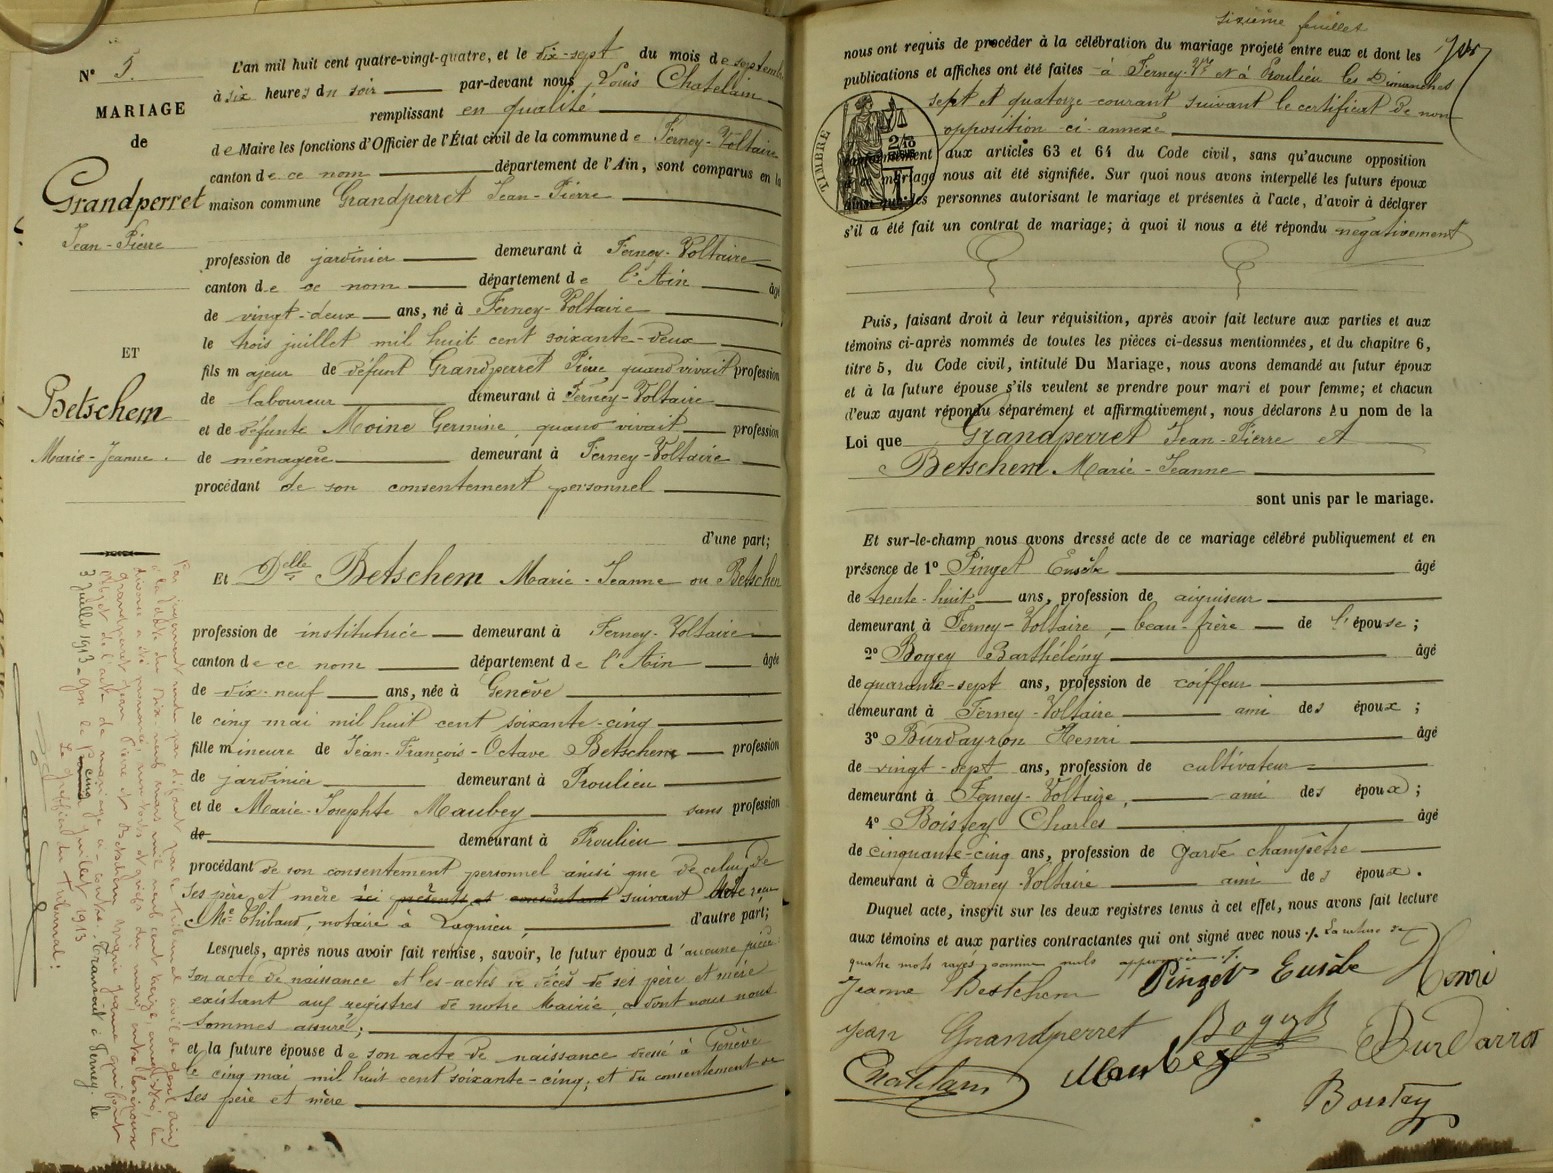 N° 5.
MARIAGE
de
Grandperret
Jean-Pierre
ET
Betschem
Marie-Jeanne.
L'an mil huit cent quatre-vingt-quatre, et le dix-sept du mois de septembre
à six heures du soir par-devant nous, Louis Chatelain
remplissant en qualité
de Maire les fonctions d'Officier de l'État civil de la commune de Ferney-Voltaire
canton de ce nom département de l'Ain, sont comparus en la
maison commune Grandperret Jean-Pierre
profession de jardinier demeurant à Ferney-Voltaire
canton de ce nom département de l'Ain âgé
de vingt-deux ans, né à Ferney-Voltaire
le trois juillet mil huit cent soixante-deux
fils majeur de défunt Grandperret Pierre quand vivait profession
de laboureur demeurant à Ferney-Voltaire
et de défunte Moine Germine, quand vivait profession
de ménagère demeurant à Ferney-Voltaire
procédant de son consentement personnel
d'une part;
Et Delle Betschem Marie-Jeanne ou Betschen
profession de institutrice demeurant à Ferney-Voltaire
canton de ce nom département de l'Ain âgée
de dix-neuf ans, née à Genève
le cinq mai mil huit cent soixante-cinq
fille mineure de Jean-François-Octave Betschem profession
de jardinier demeurant à Proulieu
et de Marie-Josephte Maubey sans profession
de demeurant à Proulieu
procédant de son consentement personnel ainsi que de celui de
ses père et mère ici présents et consentant suivant acte reçu
Me Thibaud, notaire à Lagnieu, d'autre part;
Lesquels, après nous avoir fait remise, savoir, le futur époux d'aucune pièce
son acte de naissance et les actes de décès de ses père et mère
existant aux registres de notre Mairie, ce dont nous nous
sommes assuré;
et la future épouse de son acte de naissance dressé à Genève
le cinq mai mil huit cent soixante-cinq, et du consentement de
ses père et mère
Par jugement rendu par défaut par le tribunal civil de Gex Ain
à la date du dix neuf mars mil neuf cent treize, le
divorce a été prononcé, entre les époux
Grandperret Jean Pierre et Betschem Marie Jeanne qui font
objet de l'acte de mariage ci-contre. Transcrit à Ferney le
3 juillet 1913. Gex le cinq juillet 1913
Le greffier du Tribunal:
sixième feuillet
nous ont requis de procéder à la célébration du mariage projeté entre eux et dont les
publications et affiches ont été faites à Ferney-Vre et à Proulieu les Dimanches
sept et quatorze courant suivant le certificat de non
opposition ci-annexé
TIMBRE
conformément aux articles 63 et 64 du Code civil, sans qu'aucune opposition
à ce mariage nous ait été signifiée. Sur quoi nous avons interpellé les futurs époux
ainsi que les personnes autorisant le mariage et présentes à l'acte, d'avoir à déclarer
s'il a été fait un contrat de mariage; à quoi il nous a été répondu négativement
Puis, faisant droit à leur réquisition, après avoir fait lecture aux parties et aux
témoins ci-après nommés de toutes les pièces ci-dessus mentionnées, et du chapitre 6,
titre 5, du Code civil, intitulé Du Mariage, nous avons demandé au futur époux
et à la future épouse s'ils veulent se prendre pour mari et pour femme; et chacun
d'eux ayant répondu séparément et affirmativement, nous déclarons Au nom de la
Loi que Grandperret Jean-Pierre et
Betschem Marie-Jeanne
sont unis par le mariage.
Et sur-le-champ nous avons dressé acte de ce mariage célébré publiquement et en
présence de 1° Pinget Eusèbe âgé
de trente-huit ans, profession de aiguiseur
demeurant à Ferney-Voltaire, beau-frère de l'épouse;
2° Bogey Barthélémy âgé
de quarante-sept ans, profession de coiffeur
demeurant à Ferney-Voltaire ami des époux;
3° Burdayron Henri âgé
de vingt-sept ans, profession de cultivateur
demeurant à Ferney-Voltaire, ami des époux;
4° Boistey Charles âgé
de cinquante-cinq ans, profession de garde champêtre
demeurant à Ferney-Voltaire ami des époux.
Duquel acte, inscrit sur les deux registres tenus à cet effet, nous avons fait lecture
aux témoins et aux parties contractantes qui ont signé avec nous ./. La rature de
quatre mots rayés comme nuls approuvée ./.
Jeanne Betschem Pinget Eusèbe Henri
Jean Grandperret Bogey B Burdairon
Chatelain Maubey
Boistey